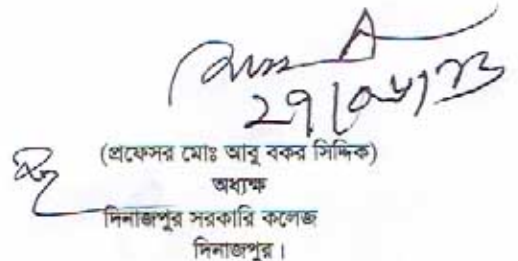 (প্রফেসর মোঃ আবু বকর সিদ্দিক)
অধ্যক্ষ
দিনাজপুর সরকারি কলেজ
দিনাজপুর।